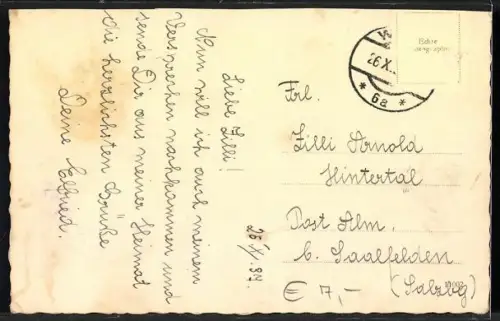 Liebe Lilli!
Nun will ich auch meinem
Versprechen nachkommen und
sende Dir aus meiner Heimat
die herzlichsten Grüße
Deine Elfried.
26.X.
* 6a *
Frl.
Lilli Arnold
Hintertal
Post Alm.
b. Saalfelden
(Salzbg)
€ 7,-